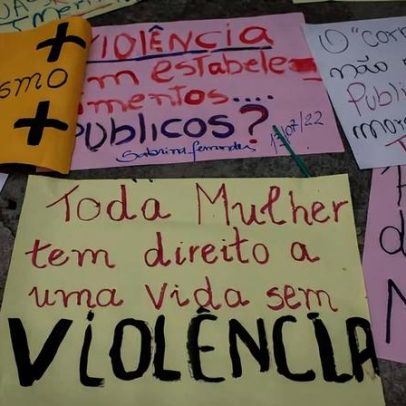 VIOLÊNCIA
em estabele-
cimentos....
PÚBLICOS?
Sabrina fernandes 13/07/22
+
ismo
+
O "corpo
não
Públi
mor
Toda Mulher
tem direito a
uma vida sem
VIOLÊNCIA